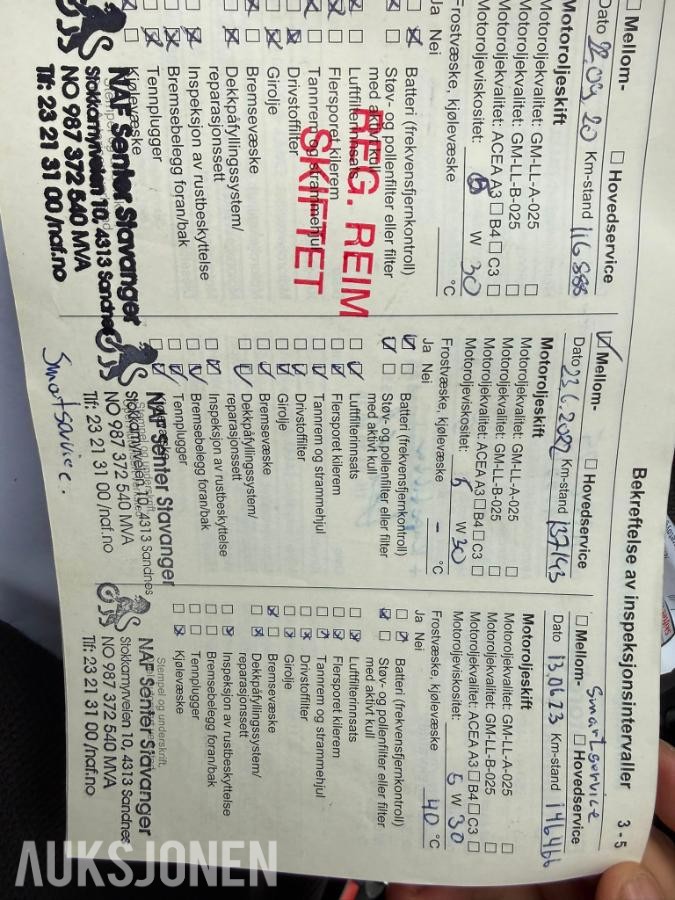 Bekreftelse av inspeksjonsintervaller 3 - 5
Mellom-
Hovedservice
Dato 22.09.20 Km-stand 116888
Motoroljeskift
Motoroljekvalitet: GM-LL-A-025
Motoroljekvalitet: GM-LL-B-025
Motoroljekvalitet: ACEA A3 B4 C3
Motoroljeviskositet: W 30
Frostvæske, kjølevæske °C
Ja Nei
Batteri (frekvensfjernkontroll)
Støv- og pollenfilter eller filter
med aktivt kull
Luftfilterinnsats
Flersporet kilerem
Tannrem og strammehjul
Drivstoffilter
Girolje
Bremsevæske
Dekkpåfyllingssystem/
reparasjonssett
Inspeksjon av rustbeskyttelse
Bremsebelegg foran/bak
Tennplugger
Kjølevæske
REG. REIM
SKIFTET
NAF Senter Stavanger
Stokkamyrveien 10, 4313 Sandnes
NO 987 372 540 MVA
Tlf: 23 21 31 00 /naf.no
Mellom-
Hovedservice
Dato 23.6.2022 Km-stand 137143
Motoroljeskift
Motoroljekvalitet: GM-LL-A-025
Motoroljekvalitet: GM-LL-B-025
Motoroljekvalitet: ACEA A3 B4 C3
Motoroljeviskositet: 5 W 30
Frostvæske, kjølevæske - °C
Ja Nei
Batteri (frekvensfjernkontroll)
Støv- og pollenfilter eller filter
med aktivt kull
Luftfilterinnsats
Flersporet kilerem
Tannrem og strammehjul
Drivstoffilter
Girolje
Bremsevæske
Dekkpåfyllingssystem/
reparasjonssett
Inspeksjon av rustbeskyttelse
Bremsebelegg foran/bak
Tennplugger
NAF Senter Stavanger
Stokkamyrveien 10, 4313 Sandnes
NO 987 372 540 MVA
Tlf: 23 21 31 00 /naf.no
Smartservice.
Smartservice
Mellom-
Hovedservice
Dato 13.06.23 Km-stand 146466
Motoroljeskift
Motoroljekvalitet: GM-LL-A-025
Motoroljekvalitet: GM-LL-B-025
Motoroljekvalitet: ACEA A3 B4 C3
Motoroljeviskositet: 5 W 30
Frostvæske, kjølevæske 40 °C
Ja Nei
Batteri (frekvensfjernkontroll)
Støv- og pollenfilter eller filter
med aktivt kull
Luftfilterinnsats
Flersporet kilerem
Tannrem og strammehjul
Drivstoffilter
Girolje
Bremsevæske
Dekkpåfyllingssystem/
reparasjonssett
Inspeksjon av rustbeskyttelse
Bremsebelegg foran/bak
Tennplugger
Kjølevæske
Stempel og underskrift
NAF Senter Stavanger
Stokkamyrveien 10, 4313 Sandnes
NO 987 372 540 MVA
Tlf: 23 21 31 00 /naf.no
AUKSJONEN